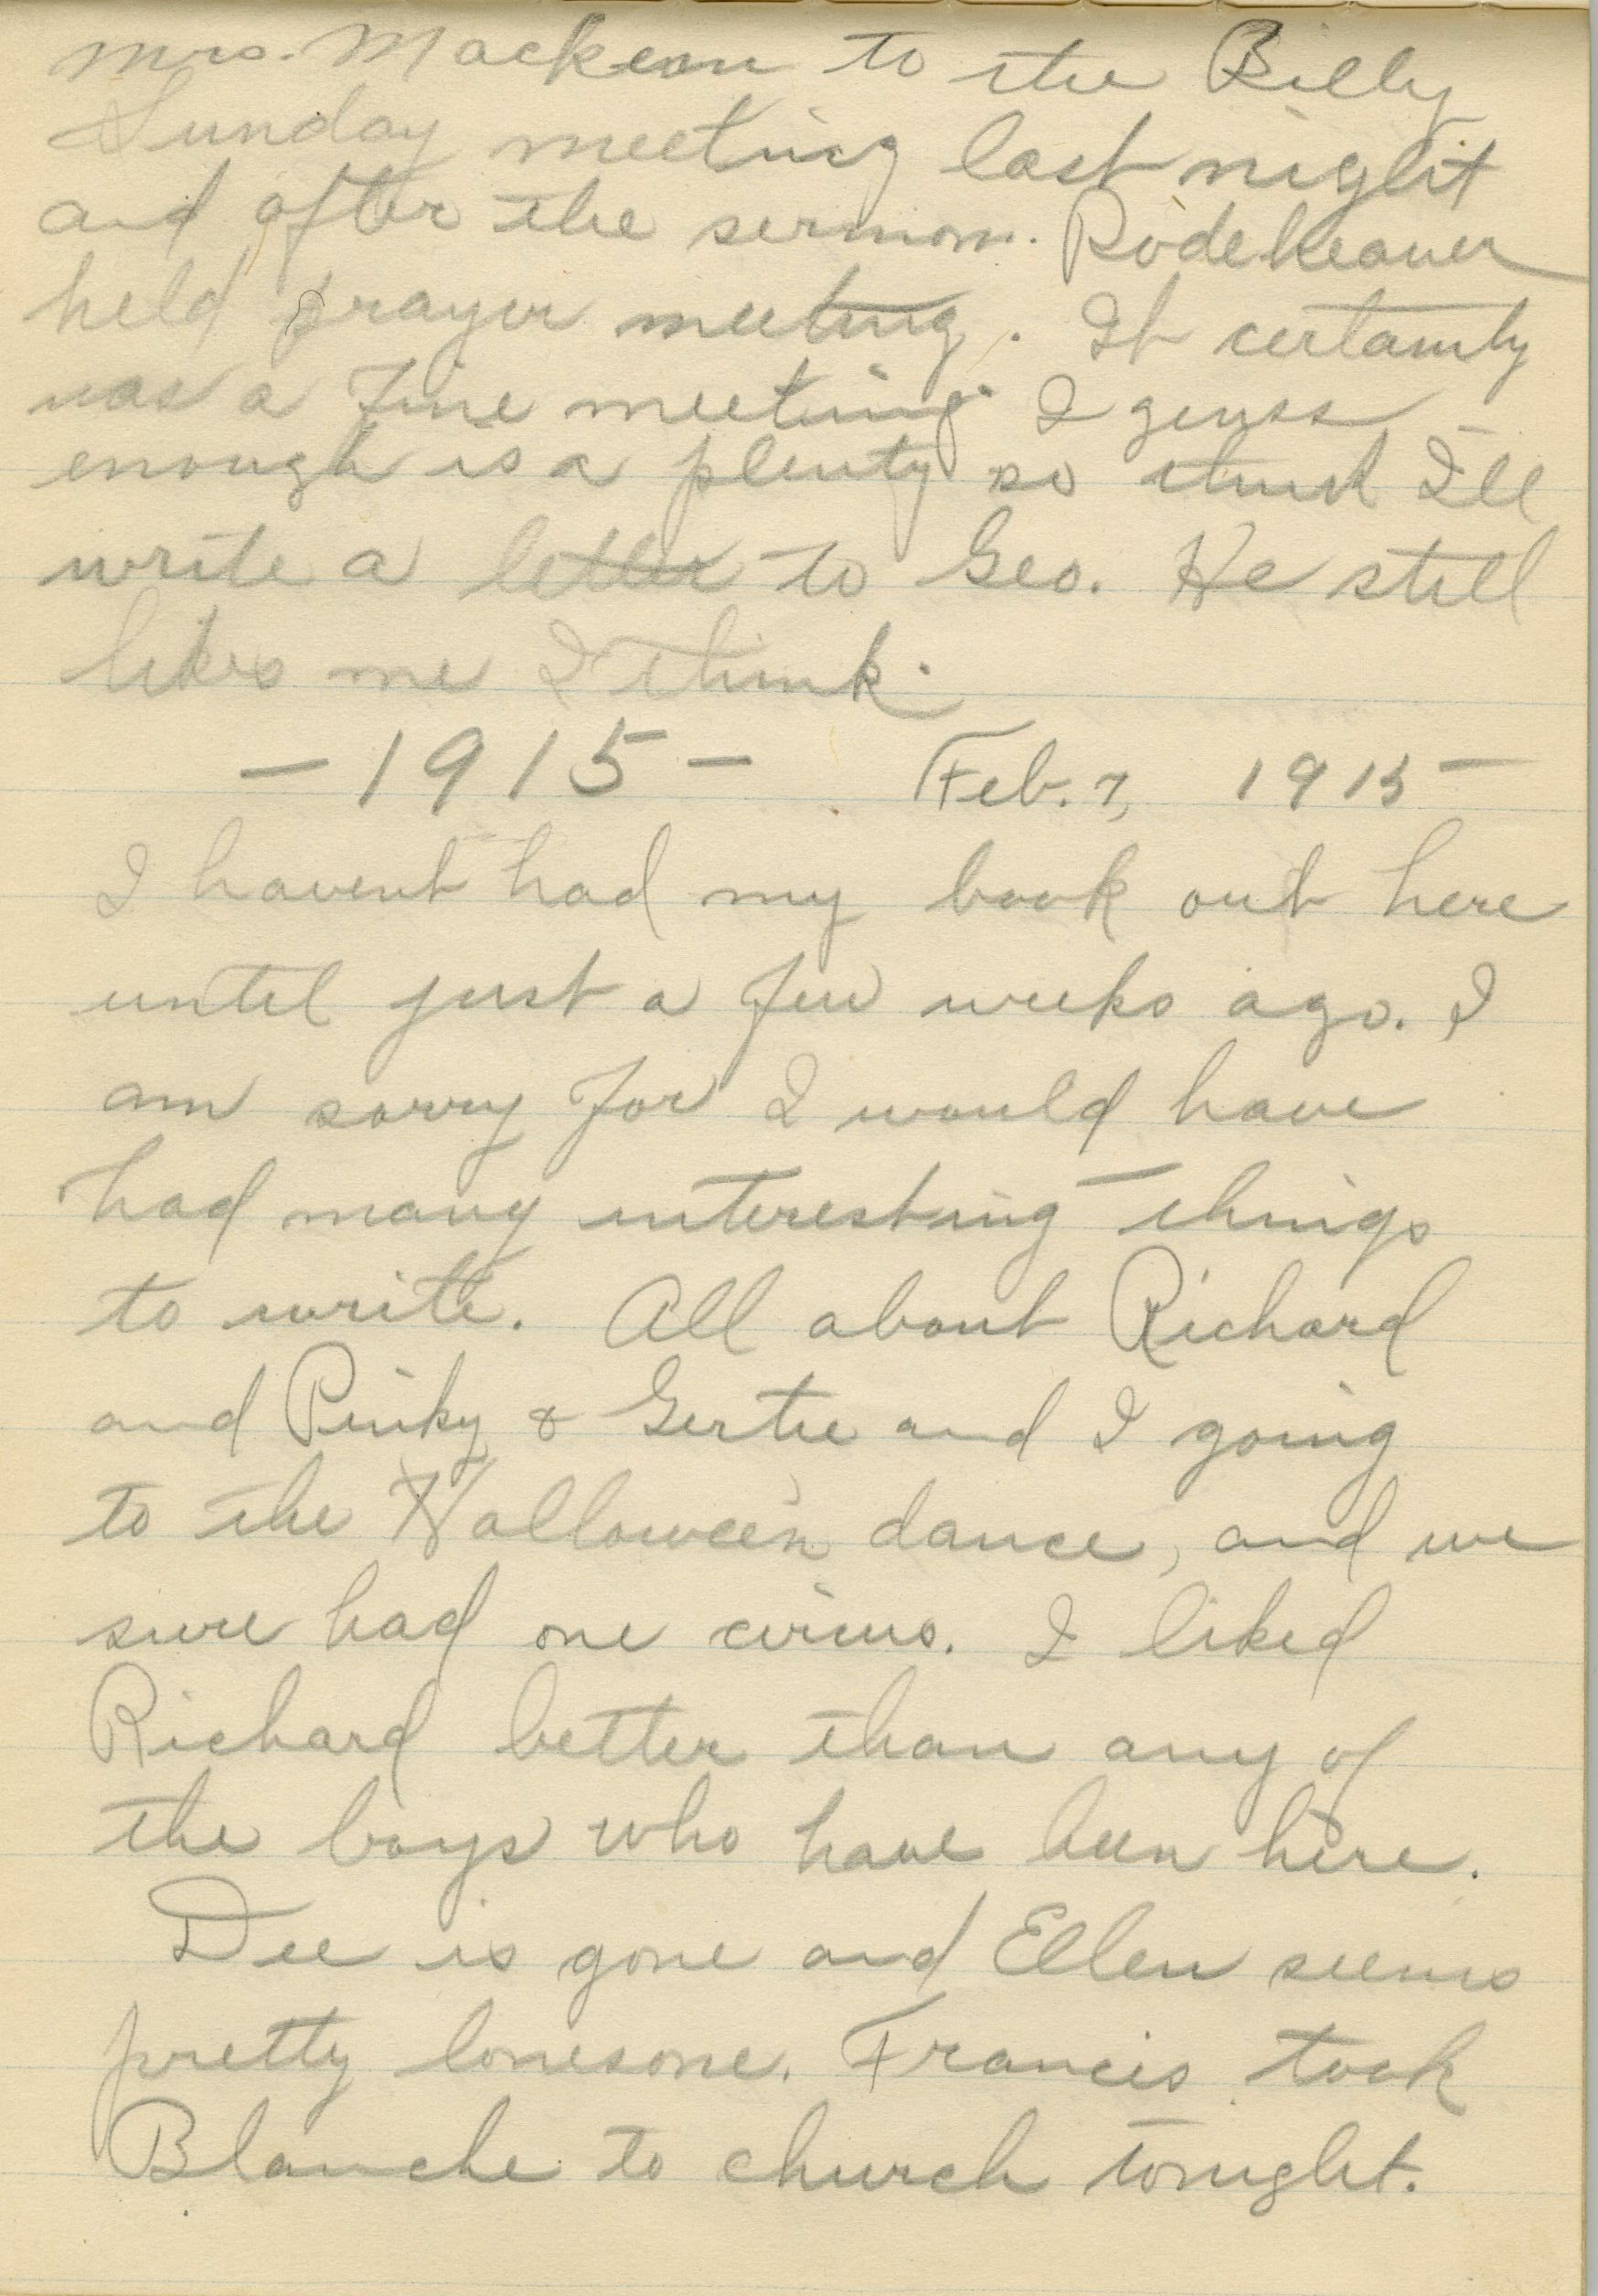 Mrs. Mackean to the Billy
Sunday meeting last night
and after the sermon. Rodeheaver
held prayer meeting. It certainly
was a fine meeting. I guess
enough is a plenty so think I'll
write a letter to Geo. He still
likes me I think.
- 1915 - Feb. 7, 1915
I havent had my book out here
until just a few weeks ago. I
am sorry for I would have
had many interesting things
to write. All about Richard
and Pinky & Gertie and I going
to the Hallowe'en dance, and we
sure had one circus. I liked
Richard better than any of
the boys who have been here.
Dee is gone and Ellen seems
pretty lonesome. Francis took
Blanche to church tonight.